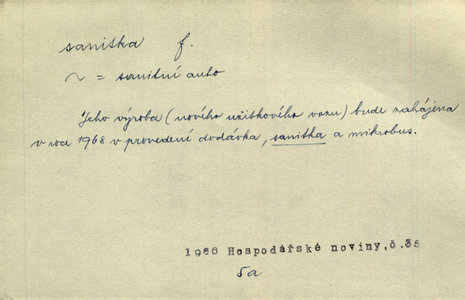 sanitka f.
~ = sanitní auto
Jeho výroba (nového užitkového vozu) bude zahájena
v roce 1968 v provedení dodávka, sanitka a mikrobus.
1966 Hospodářské noviny,č.35
5a